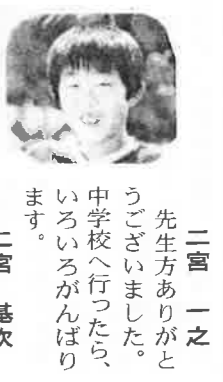 二宮 一之
先生方ありがと
うございました。
中学校へ行ったら、
いろいろがんばり
ます。
二宮 基次